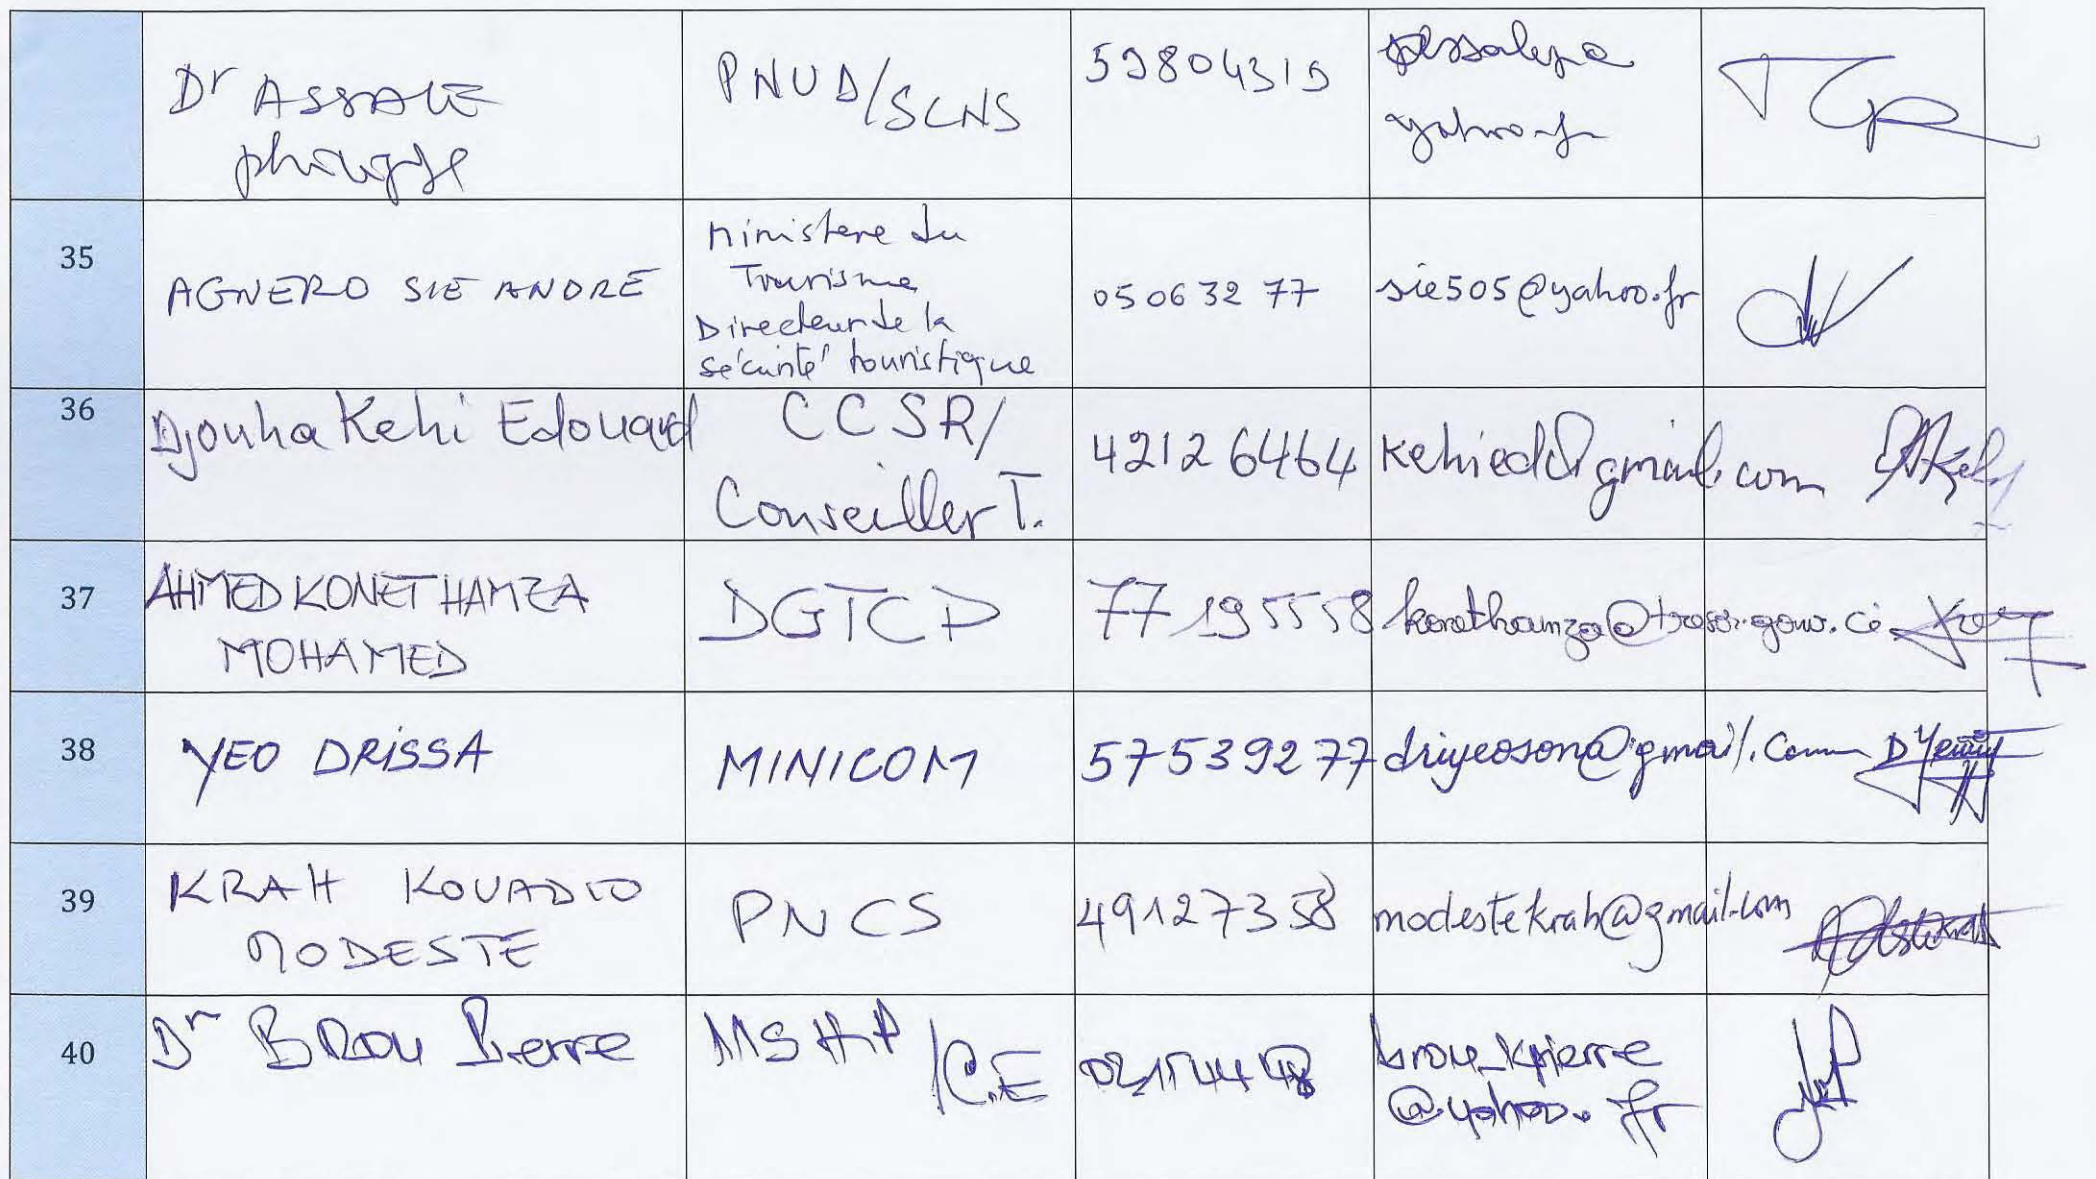 Dr ASSALE
philippe
PNUD/SCNS
59804319
yahoo.fr
35
AGNERO SIE ANDRE
Ministere du
Tourisme
Directeur de la
sécurité touristique
05 06 32 77
sie505@yahoo.fr
36
Djouha Kehi Edouard
CCSR/
Conseiller T.
42126464
kehied@gmail.com
37
AHMED KONET HAMZA
MOHAMED
DGTCP
77195558
konethamza@tresor.gouv.ci
38
YEO DRISSA
MINICOM
57539277
driyeoson@gmail.com
39
KRAH KOUADIO
MODESTE
PNCS
49127358
modestekrah@gmail.com
40
Dr BROU Pierre
MSHP
/C.E
brou_kpierre
@yahoo.fr